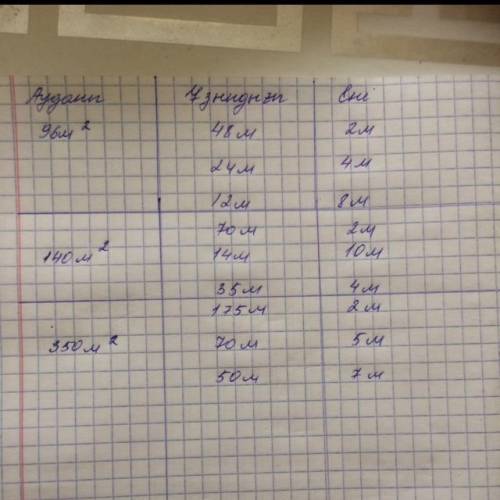 Ауданы Ұзындығы Ені
96м² 48м 2м
24м 4м
12м 8м
70м 2м
140м² 14м 10м
35м 4м
175м 2м
350м² 70м 5м
50м 7м